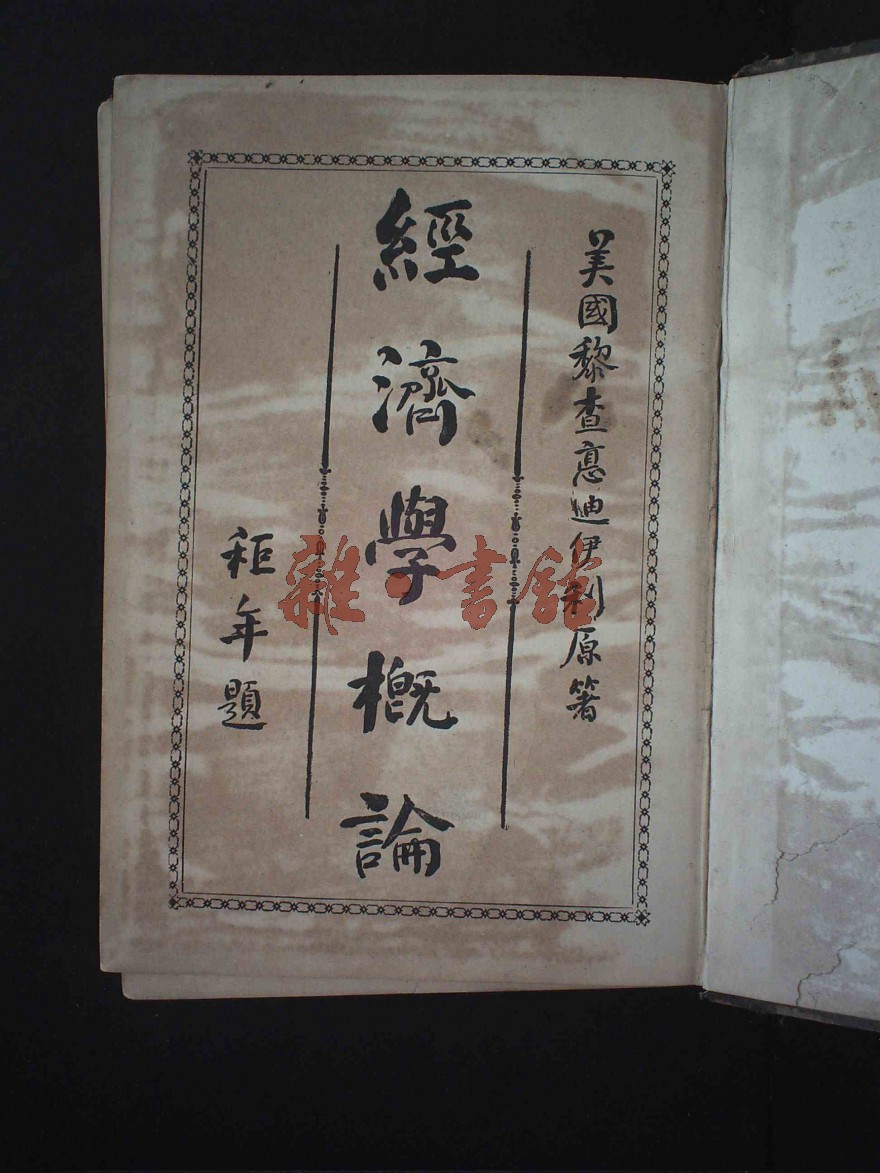 美國黎查惪迪伊利原箸
經濟學概論
秬年題
雜·書館